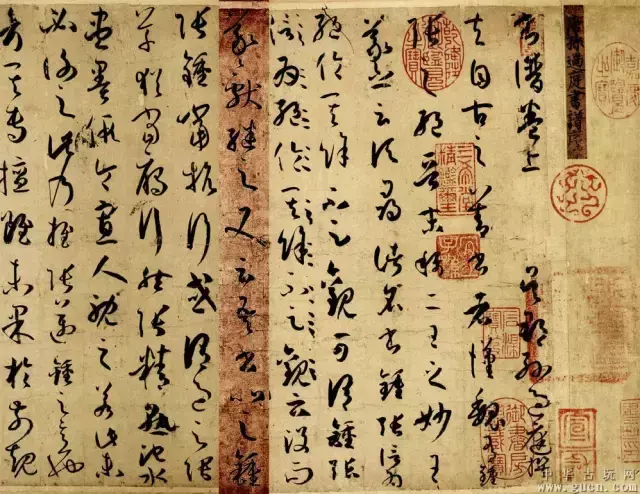 唐孫過庭書譜
書譜卷上 吳郡孫過庭撰
夫自古之善書者漢魏有鍾
張之絕晉末稱二王之妙王
羲之云頃尋諸名書鍾張信為
絕倫其餘不足觀可謂鍾張
信為絕倫其餘不足觀云沒而
羲獻繼之又云吾書比之鍾
張鍾當抗行或謂過之張
草猶當鴈行然張精熟池水
盡墨假令寡人耽之若此未
必謝之此乃推張邁鍾之意也
考其專擅雖未果於前規
中华古玩网
www.gucn.com